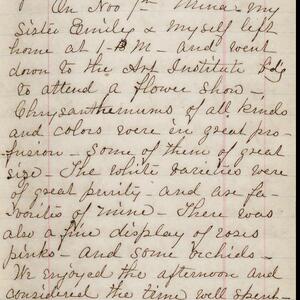 On Nov 7th Mina - my
Sister Emiley & myself left
home at 1- P.M - and went
down to the Art Institute Bdg
to attend a flower show -
Chrysanthemums of all kinds
and colors were in great pro-
-fusion - Some of them of great
size - The white varieties were
of great purity - and are fa-
vorites of mine - There was
also a fine display of roses
pinks - and some orchids -
We enjoyed the afternoon and
considered the time well spent -